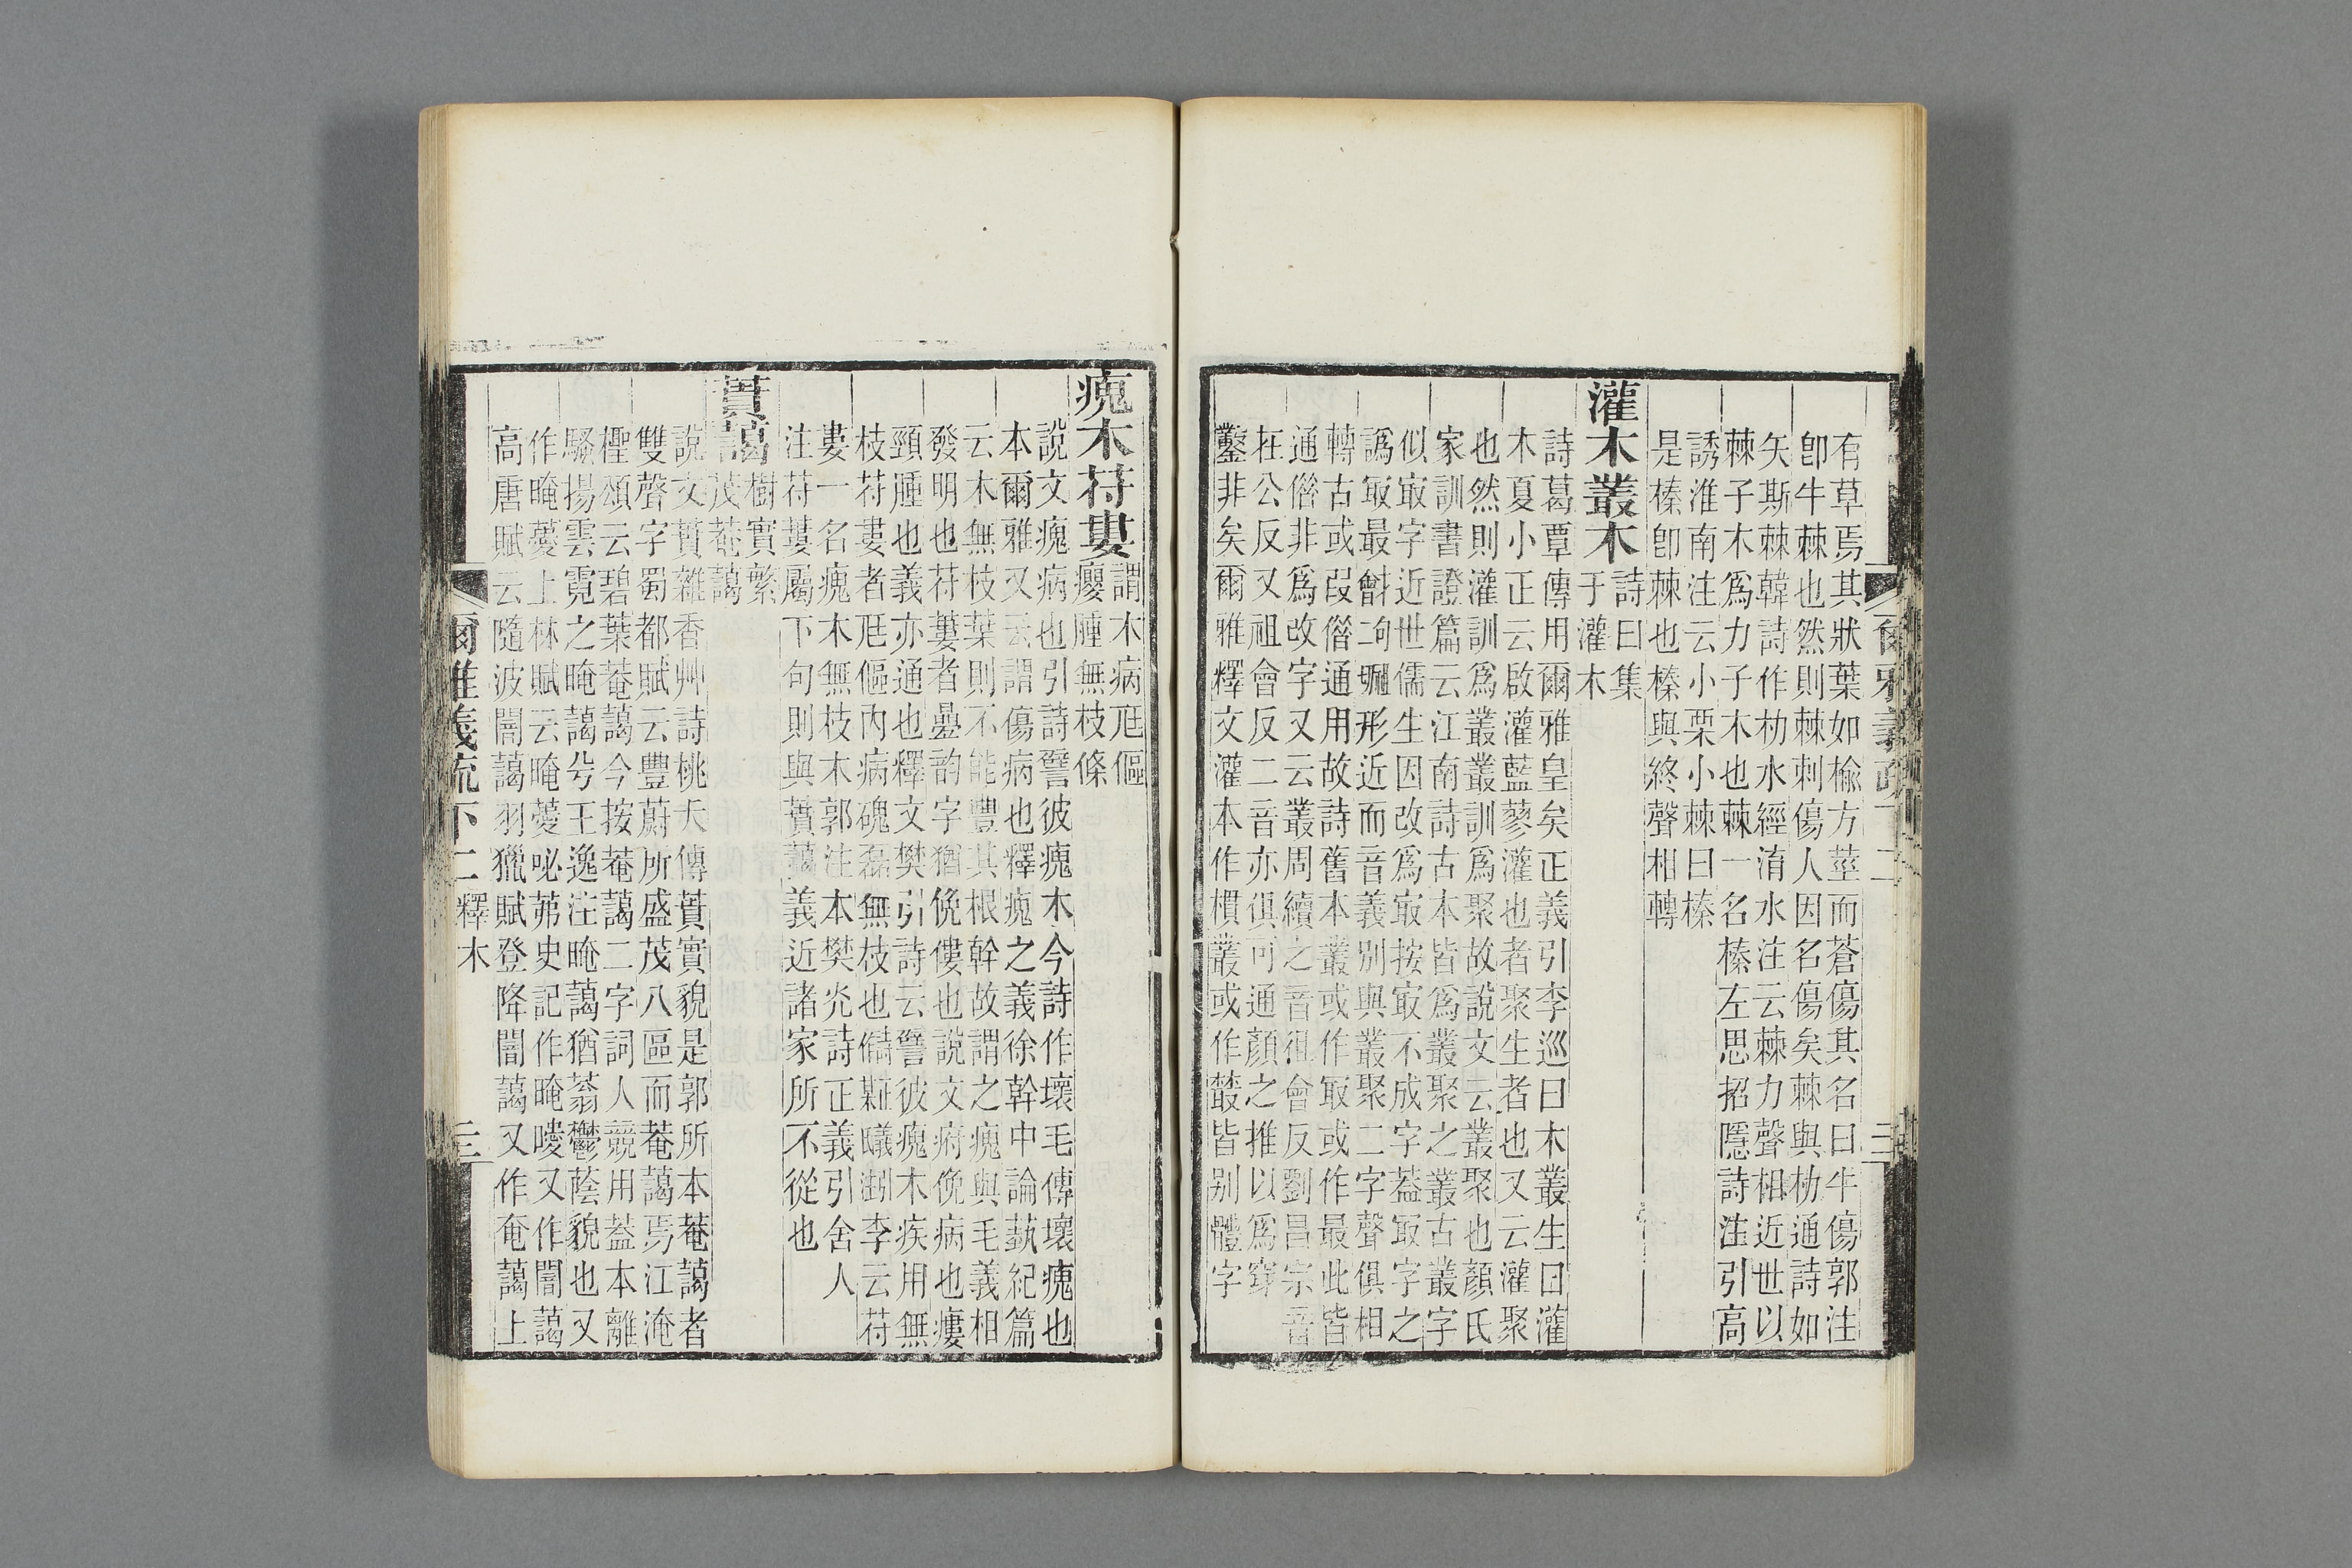 有草焉其狀葉如楡方莖而蒼傷其名曰牛傷郭注
卽牛棘也然則棘刺傷人因名傷矣棘與朸通詩如
矢斯棘韓詩作朸水經淯水注云棘力聲相近世以
棘子木爲力子木也棘一名榛左思招隱詩注引高
誘淮南注云小栗小棘曰榛
是榛卽棘也榛與終聲相轉
灌木叢木
詩曰集
于灌木
詩葛覃傳用爾雅皇矣正義引李巡曰木叢生曰灌
木夏小正云啟灌藍蓼灌也者聚生者也又云灌聚
也然則灌訓爲叢叢訓爲聚故說文云叢聚也顏氏
家訓書證篇云江南詩古本皆爲叢聚之叢古叢字
似冣字近世儒生因改爲冣按冣不成字葢冣字之
譌冣最形近而音義別與叢聚二字聲俱相
轉古或叚偺通用故詩舊本叢或作冣或作最此皆
通偺非爲改字又云叢周續之音徂會反劉昌宗音
在公反又祖會反二音亦俱可通顏之推以爲穿
鑿非矣爾雅釋文灌本作樌叢或作藂皆别體字
瘣木苻婁
謂木病尫傴
癭腫無枝條
說文瘣病也引詩譬彼瘣木今詩作壞毛傳壞瘣也
本爾雅又云謂傷病也釋瘣之義徐幹中論蓺紀篇
云木無枝葉則不能豐其根幹故謂之瘣與毛義相
發明也苻蔞者曡韵字猶俛僂也說文府俛病也瘻
頸腫也義亦通也釋文樊引詩云譬彼瘣木疾用無
枝苻婁者尫傴內病磈磊無枝也李云苻
婁一名瘣木無枝木郭注本樊光詩正義引舍人
注苻蔞屬下句則與蕡藹義近諸家所不從也
蕡藹
樹實繁
茂菴藹
說文蕡雜香艸詩桃夭傳蕡實貌是郭所本菴藹者
雙聲字蜀都賦云豐蔚所盛茂八區而菴藹焉江淹
檉頌云碧葉菴藹今按菴藹二字詞人競用葢本離
騷揚雲霓之晻藹兮王逸注晻藹猶蓊鬱蔭貌也又
作晻薆上林賦云晻薆咇茀史記作晻曖又作闇藹
高唐賦云隨波闇藹羽獵賦登降闇藹又作奄藹上
爾雅義疏下二釋木
三